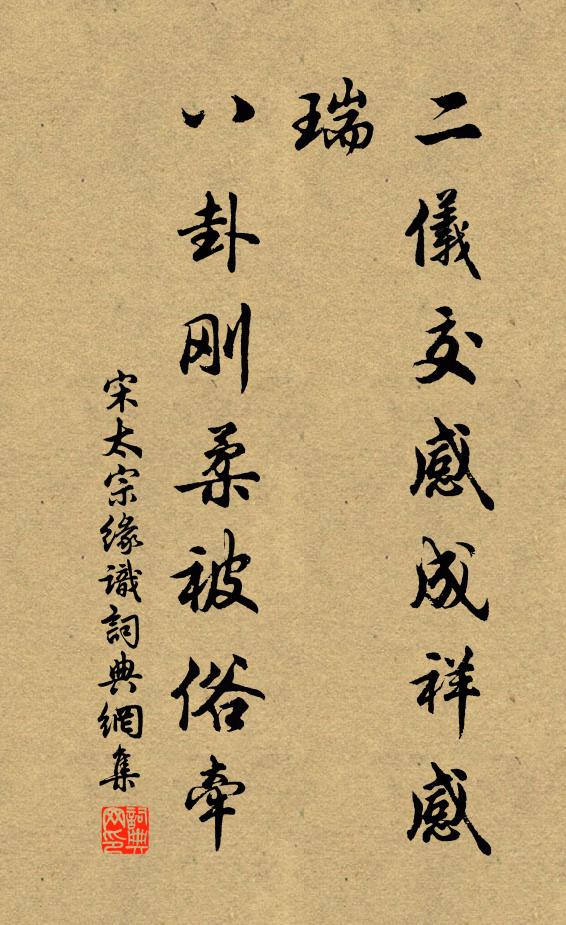 二儀交感成祥感
瑞
八卦刚柔被俗牽
宋太宗緣識詞典網集
詞典网印